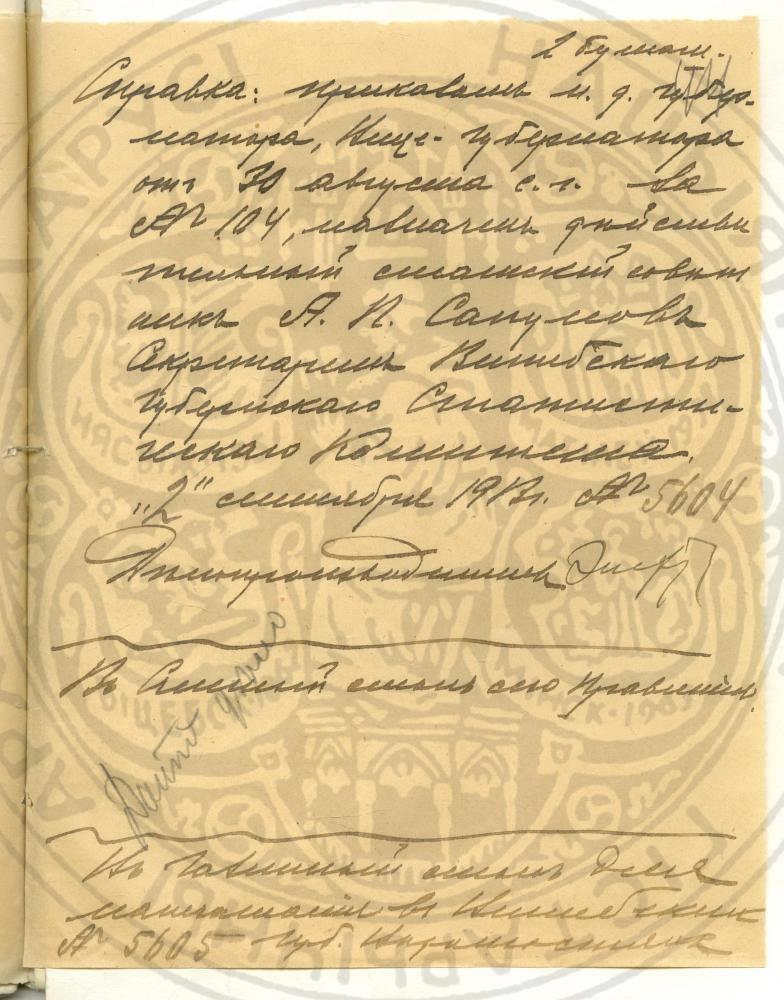 2 бумаги.
Справка: приказомъ и. д. губер-
натора, Вице-Губернатора
отъ 30 августа с. г. за
№ 104, назначенъ дѣйстви
тельный статскій совѣт
никъ А. П. Сапуновъ
Секретаремъ Витебскаго
Губернскаго Статисти-
ческаго Комитета.
„2" сентября 1913г. № 5604
Дѣлопроизводитель
Въ Счетный столъ сего Правленія.
Въ Газетный столъ для
напечатанія въ Витебскихъ
№ 5605 Губ. Вѣдомостяхъ